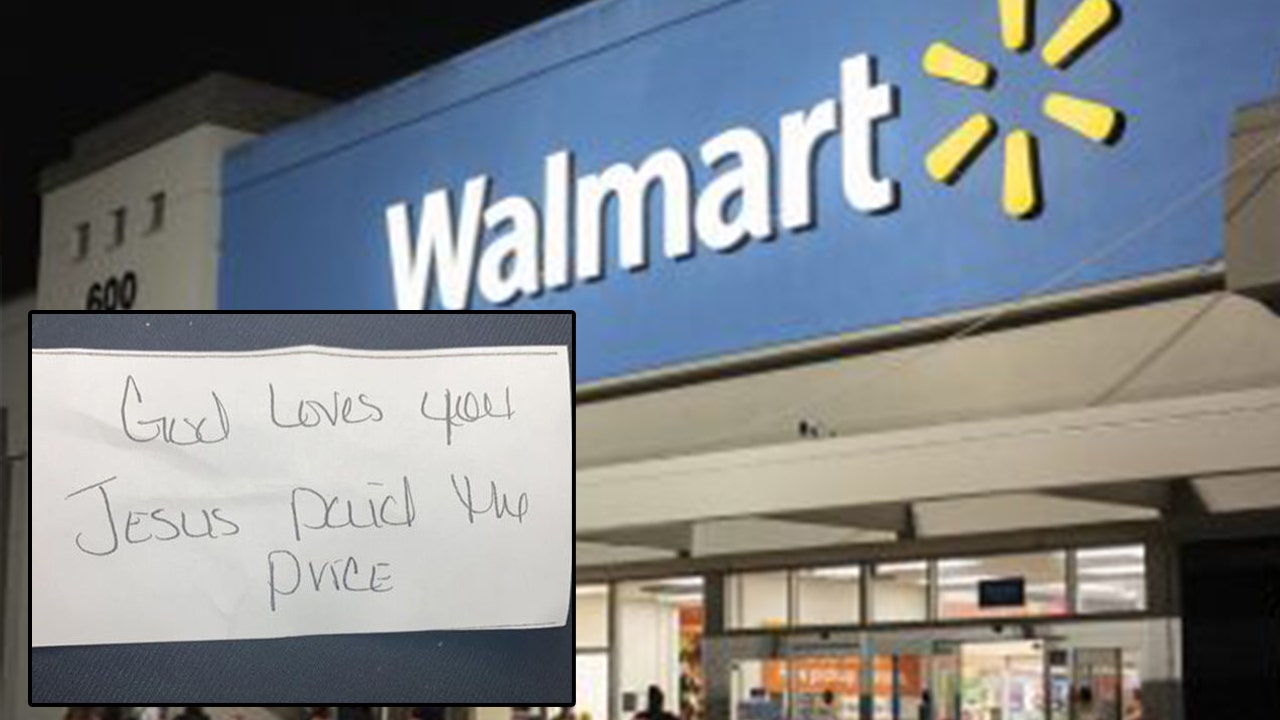 Walmart
600
God Loves you
Jesus paid the
price